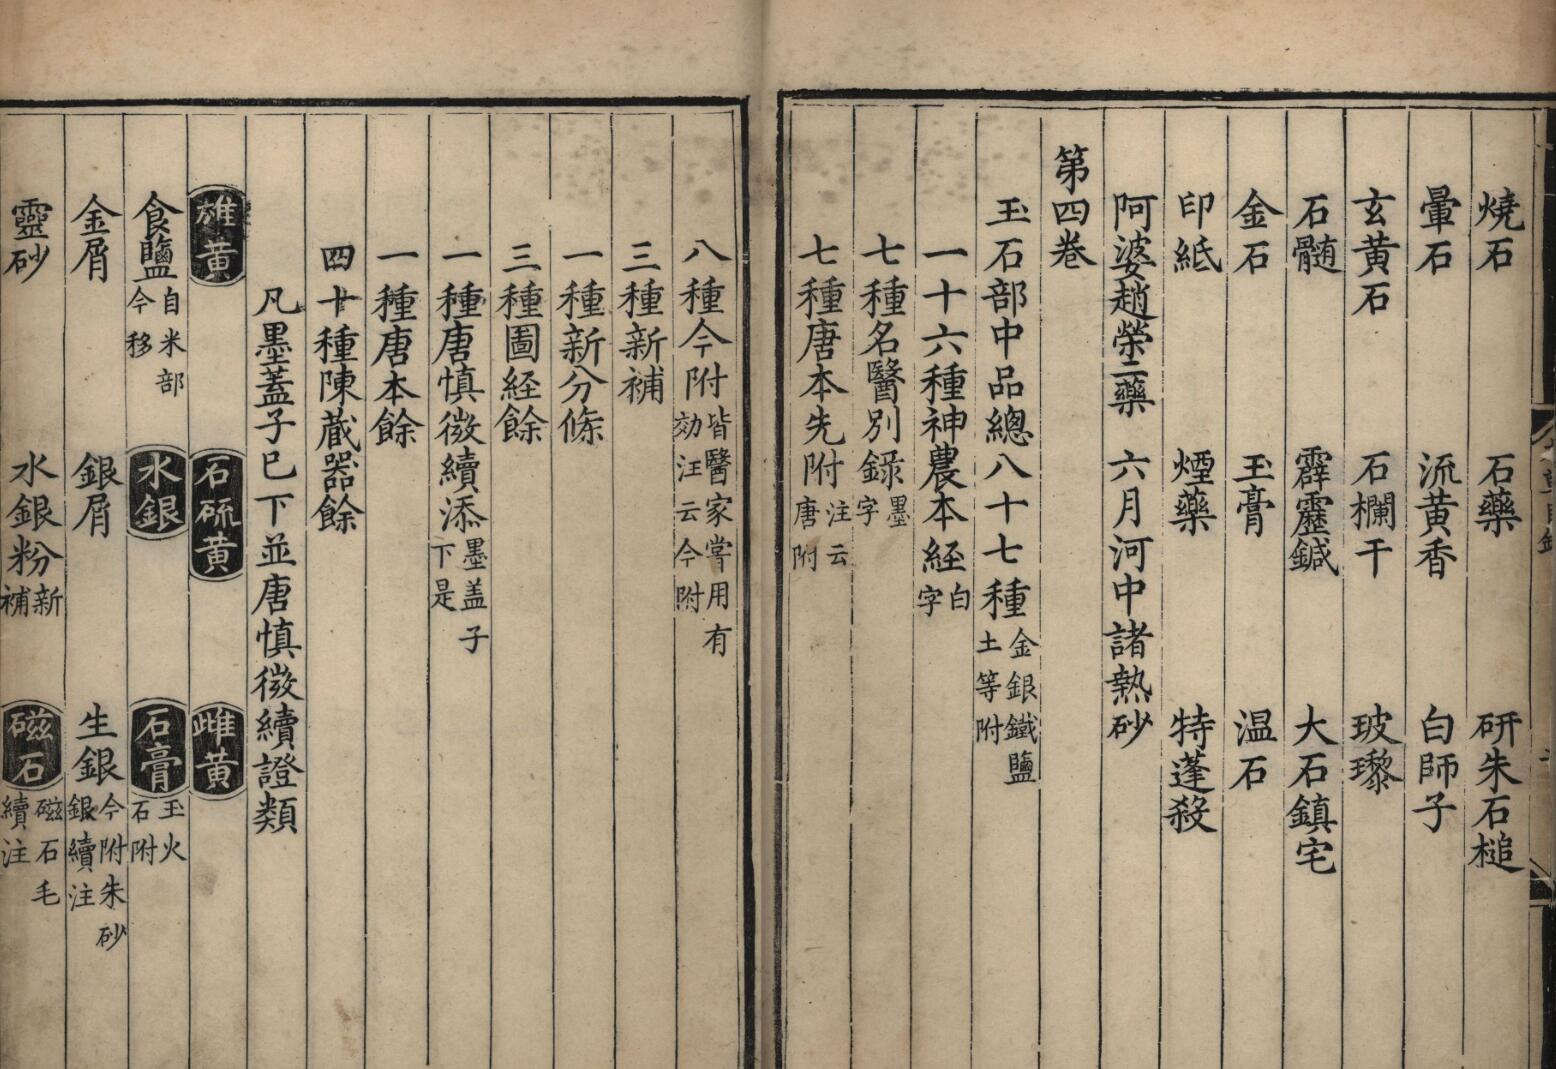 燒石 石藥 研朱石槌
暈石 流黃香 白師子
玄黃石 石欄干 玻瓈
石髓 霹靂鍼 大石鎮宅
金石 玉膏 温石
印紙 煙藥 特蓬殺
阿婆趙榮二藥 六月河中諸熱砂
第四卷
玉石部中品總八十七種金銀鐵鹽土等附
一十六種神農本経白字
七種名醫別錄墨字
七種唐本先附注云唐附
八種今附皆醫家嘗用有効注云今附
三種新補
一種新分條
三種圖経餘
一種唐慎微續添墨盖子下是
一種唐本餘
四十種陳蔵器餘
凡墨蓋子巳下並唐慎微續證類
雄黃 石硫黃 雌黃
食鹽自米部今移 水銀 石膏玉火石附
金屑 銀屑 生銀今附朱砂銀續注
靈砂 水銀粉新補 磁石磁石毛續注